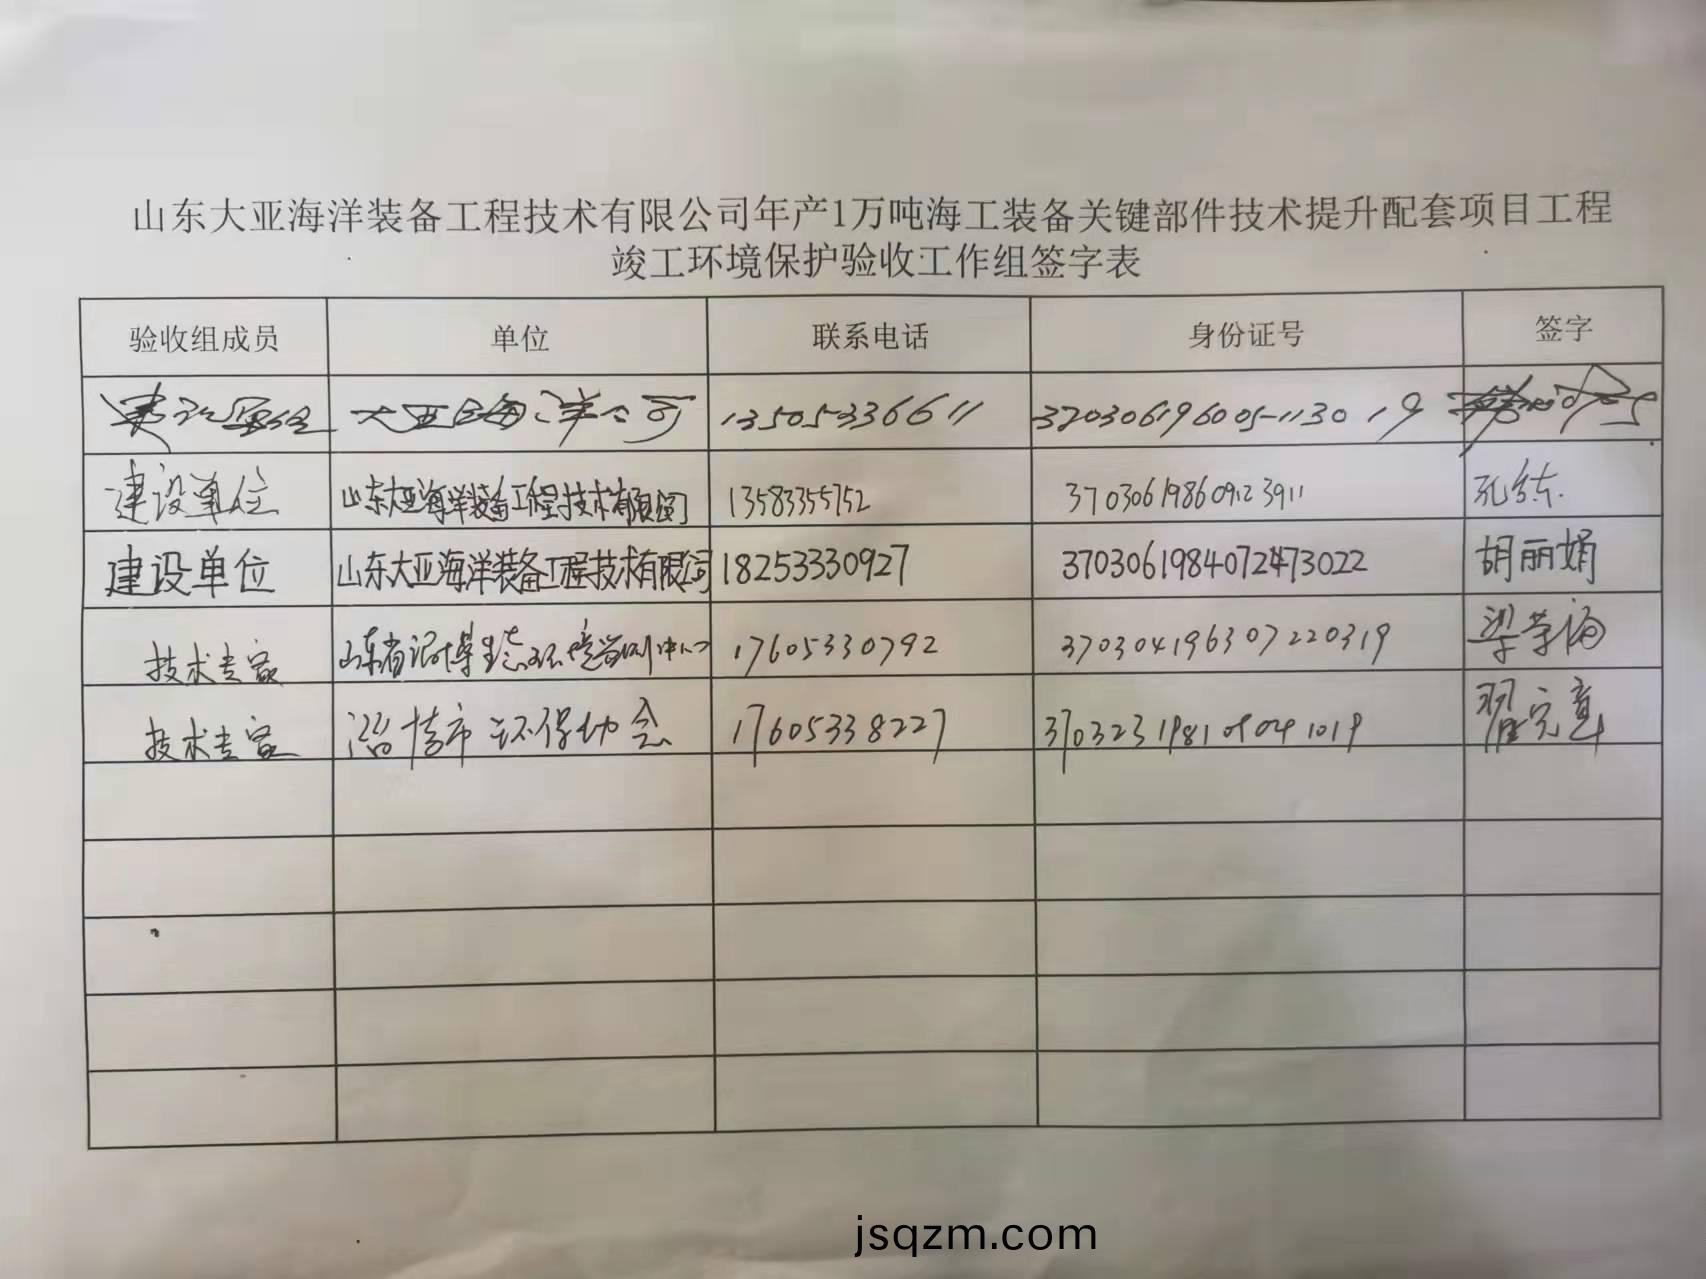 山东大亚海洋装备工程技术有限公司年产1万吨海工装备关键部件技术提升配套项目工程
竣工环境保护验收工作组签字表
验收组成员 单位 联系电话 身份证号 签字
建设单位 大亚海洋公司 13505336611
建设单位 山东大亚海洋装备工程技术有限公司 13583355752 孔练
建设单位 山东大亚海洋装备工程技术有限公司 18253330927 胡丽娟
技术专家 山东省淄博生态环境 中心 17605330792 370304196307220319
技术专家 淄博市环保协会 17605338227 翟完章
jsqzm.com